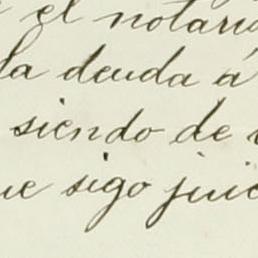 el notari
la deuda á
siendo de
ue sigo juic